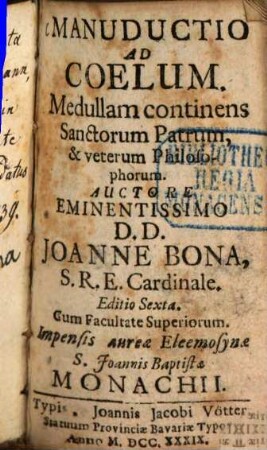 MANUDUCTIO
AD
COELUM.
Medullam continens
Sanctorum Patrum,
& veterum Philoso-
phorum.
AUCTORE
EMINENTISSIMO
D. D.
JOANNE BONA,
S. R. E. Cardinale.
Editio Sexta.
Cum Facultate Superiorum.
Impensis aureæ Eleemosynæ
S. Joannis Baptistæ
MONACHII.
Typis Joannis Jacobi Vötter,
Statuum Provinciæ Bavariæ Typ
Anno M. DCC. XXXIX.
BIBLIOTHECA
REGIA
MONACENSIS